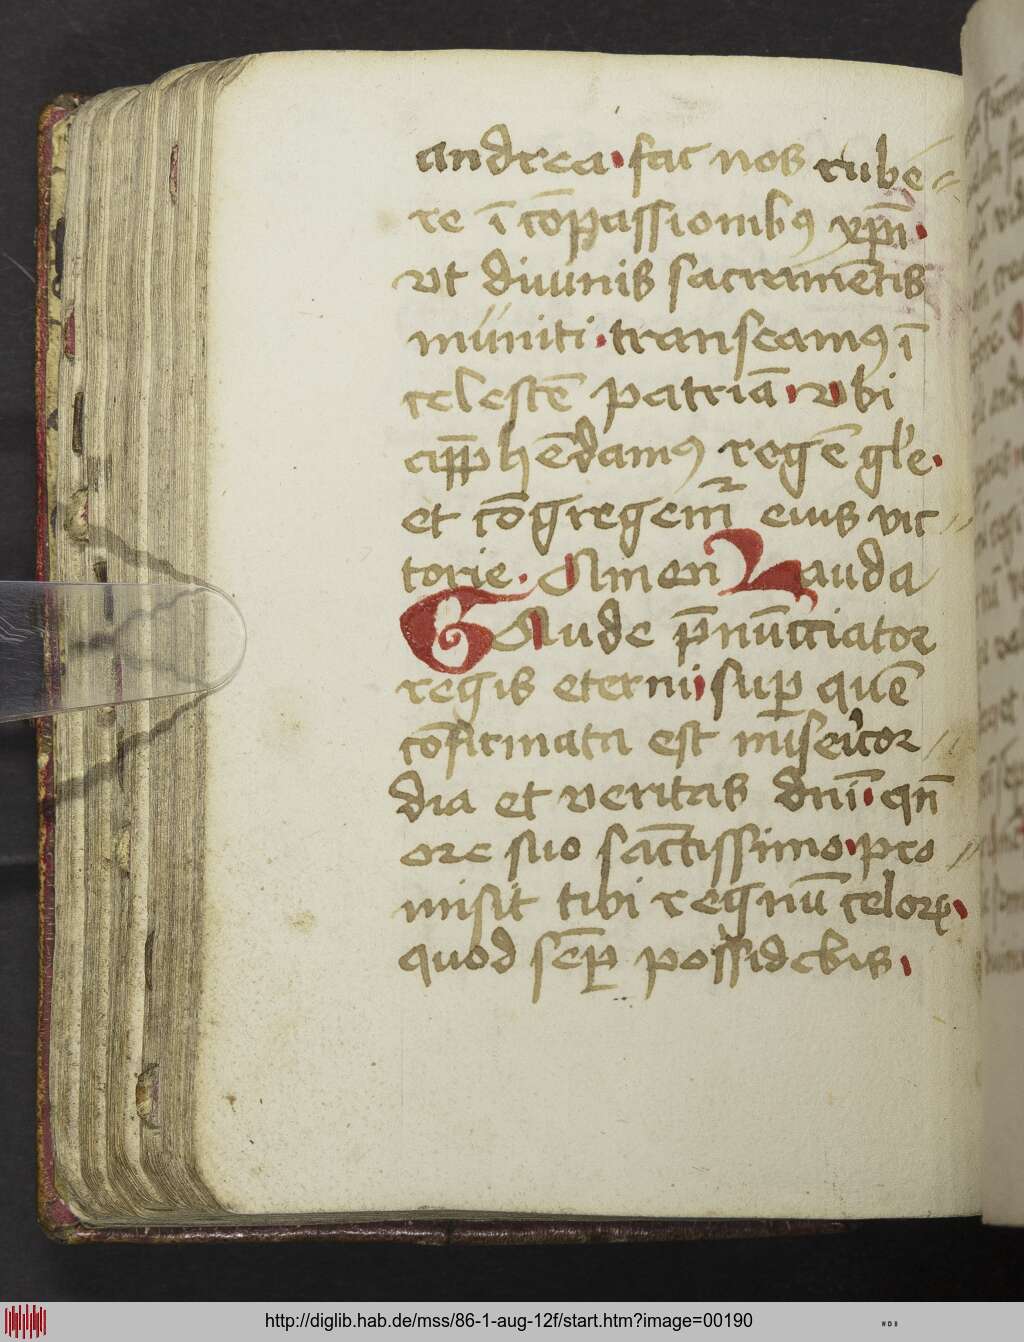 andrea. fac nos rube⸗
re ī cōpassionibꝯ xp̄ī.
vt diuinis sacramētis
muniti. transeamꝯ ī
celestē patriā. vbi
app̄hēdamꝯ regē gl'e.
et cōgregem̄ eius vic⸗
torie. Amen Lauda
GAude p̄nūcciator
regis eterni. sup quē
cōfirmata est miserẜcor⸗
dia et veritas dnī. qn̄
ore suo sāctissimo. pro⸗
misit tibi regnū celoꝝ.
quod sēp possidebis.
http://diglib.hab.de/mss/86-1-aug-12f/start.htm?image=00190